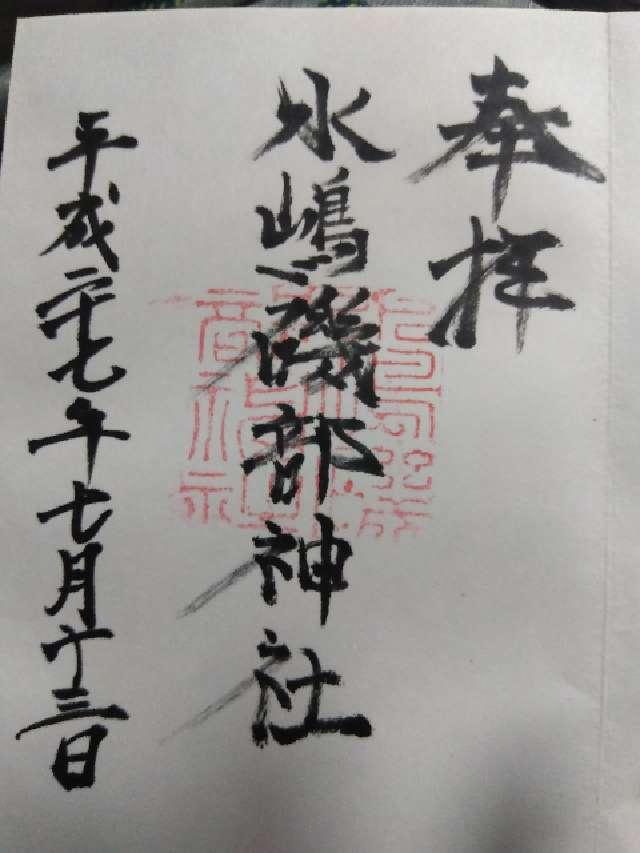 奉拝
水嶋磯部神社
平成二十七年七月十三日